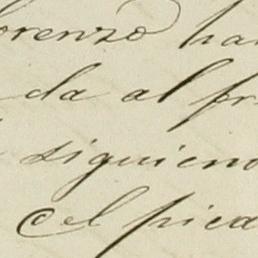 orenzo ha
da al pr
siguien
el pica